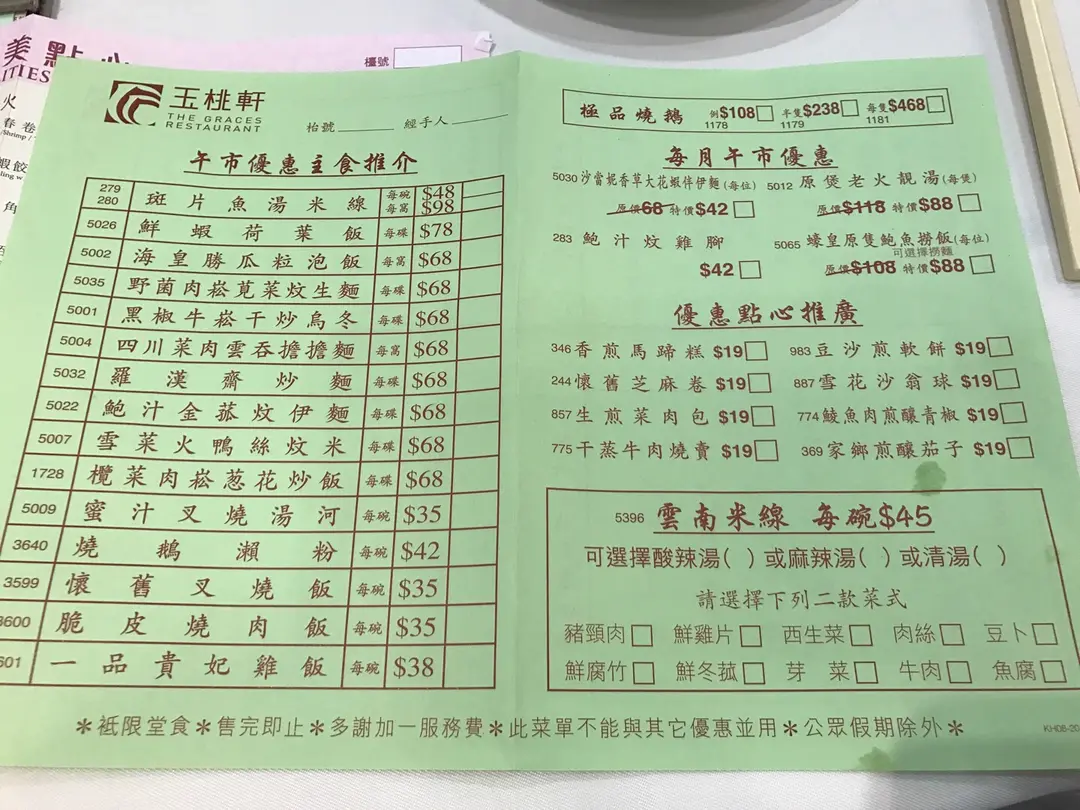 美點
ITIES
火
春卷
/Shrimp /
蝦餃
ling w
角
檯號
玉桃軒
THE GRACES
RESTAURANT
枱號 經手人
午市優惠主食推介
279 280 斑片魚湯米線 每碗 $48 每窩 $98
5026 鮮蝦荷葉飯 每碟 $78
5002 海皇勝瓜粒泡飯 每窩 $68
5035 野菌肉崧莧菜炆生麵 每碟 $68
5001 黑椒牛崧干炒烏冬 每碟 $68
5004 四川菜肉雲吞擔擔麵 每窩 $68
5032 羅漢齋炒麵 每碟 $68
5022 鮑汁金菇炆伊麵 每碟 $68
5007 雪菜火鴨絲炆米 每碟 $68
1728 欖菜肉崧葱花炒飯 每碟 $68
5009 蜜汁叉燒湯河 每碗 $35
3640 燒鵝瀨粉 每碗 $42
3599 懷舊叉燒飯 每碗 $35
3600 脆皮燒肉飯 每碗 $35
601 一品貴妃雞飯 每碗 $38
極品燒鵝 例$108 半隻$238 每隻$468
1178 1179 1181
每月午市優惠
5030 沙當妮香草大花蝦伴伊麵(每位) 5012 原煲老火靚湯(每煲)
原價68 特價$42 原價$118 特價$88
283 鮑汁炆雞腳 5065 蠔皇原隻鮑魚撈飯(每位)
可選擇撈麵
$42 原價$108 特價$88
優惠點心推廣
346 香煎馬蹄糕 $19 983 豆沙煎軟餅 $19
244 懷舊芝麻卷 $19 887 雪花沙翁球 $19
857 生煎菜肉包 $19 774 鯪魚肉煎釀青椒 $19
775 干蒸牛肉燒賣 $19 369 家鄉煎釀茄子 $19
5396 雲南米線 每碗$45
可選擇酸辣湯( )或麻辣湯( )或清湯( )
請選擇下列二款菜式
豬頸肉 鮮雞片 西生菜 肉絲 豆卜
鮮腐竹 鮮冬菰 芽菜 牛肉 魚腐
＊祗限堂食＊售完即止＊多謝加一服務費＊此菜單不能與其它優惠並用＊公眾假期除外＊
KH08-20